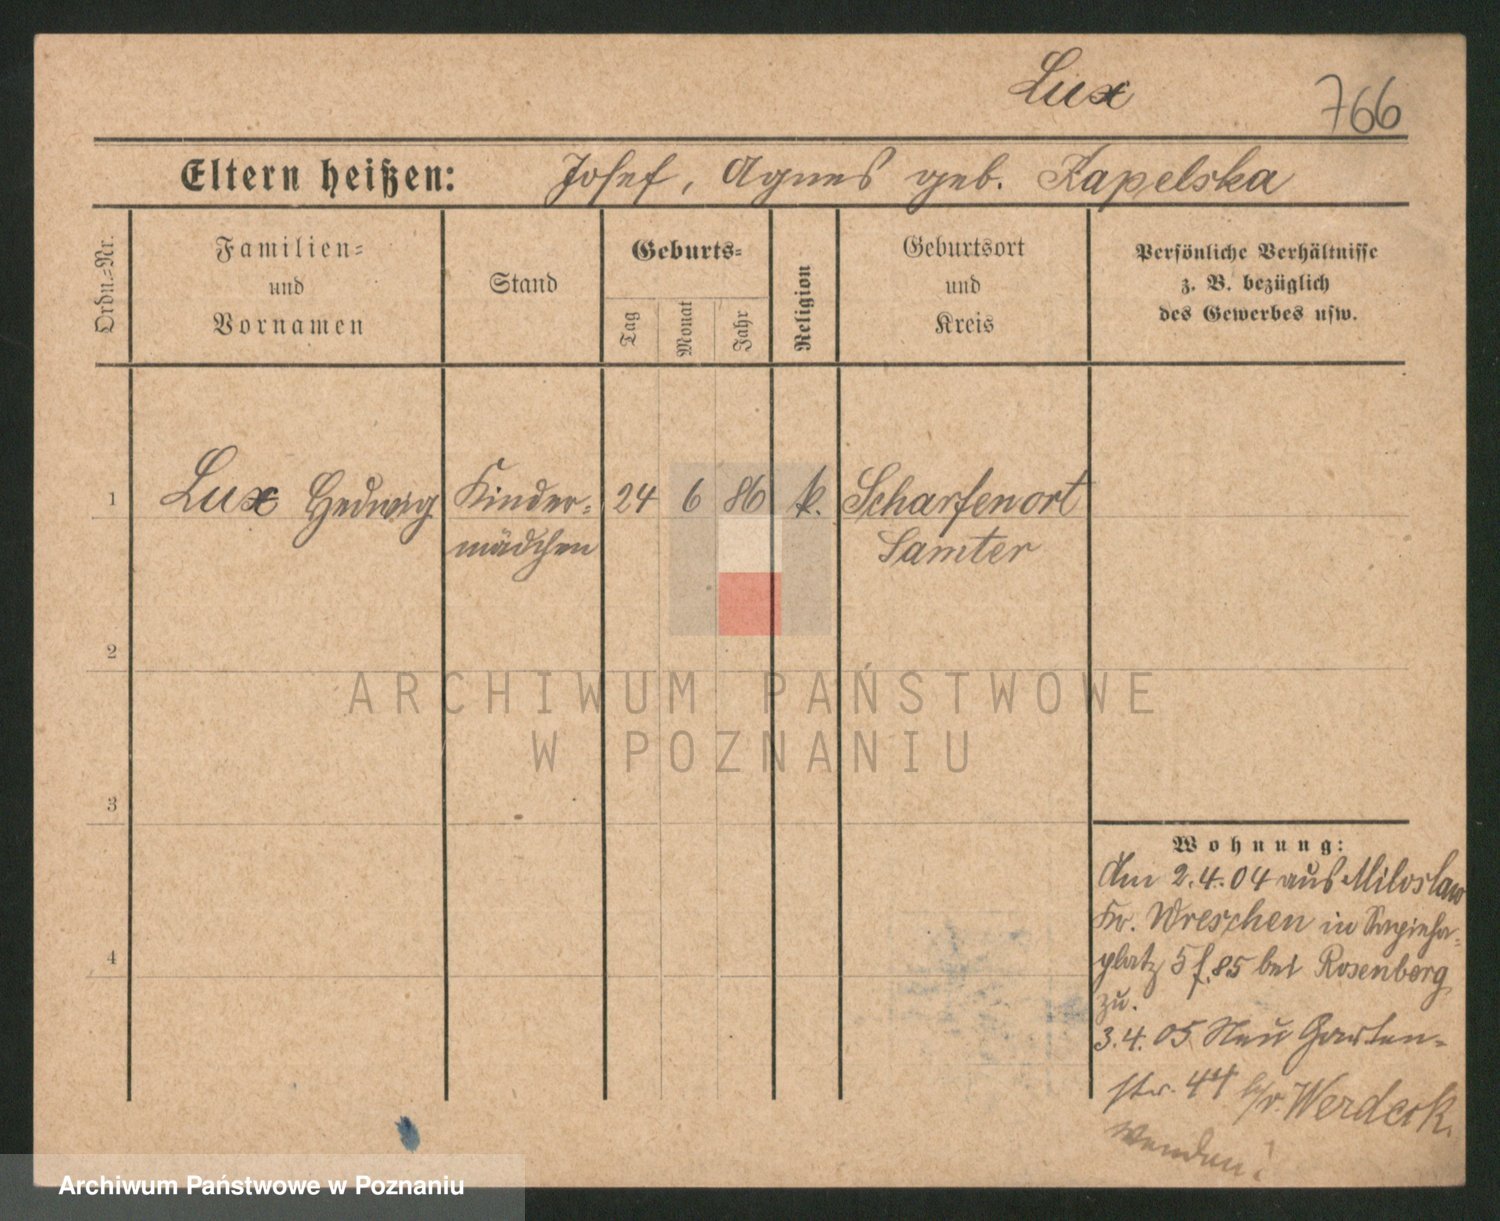 Lux
766
Eltern heißen: Josef, Agnes geb. Kapelska
Ordn.=Nr.
Familien=
und
Vornamen
Stand
Geburts=
Tag
Monat
Jahr
Religion
Geburtsort
und
Kreis
Persönliche Verhältnisse
z. B. bezüglich
des Gewerbes usw.
1 Lux Hedwig Kinder= 24 6 86 k. Scharfenort
mädchen Samter
2
ARCHIWUM PAŃSTWOWE
W POZNANIU
3
Wohnung:
Am 2.4.04 aus Miloslaw
Kr. Wreschen in Sapieha=
4
platz 5 f. 85 bei Rosenberg
zu.
3.4.05 Neu Garten=
str. 44 Werdeck.
wenden!
Archiwum Państwowe w Poznaniu